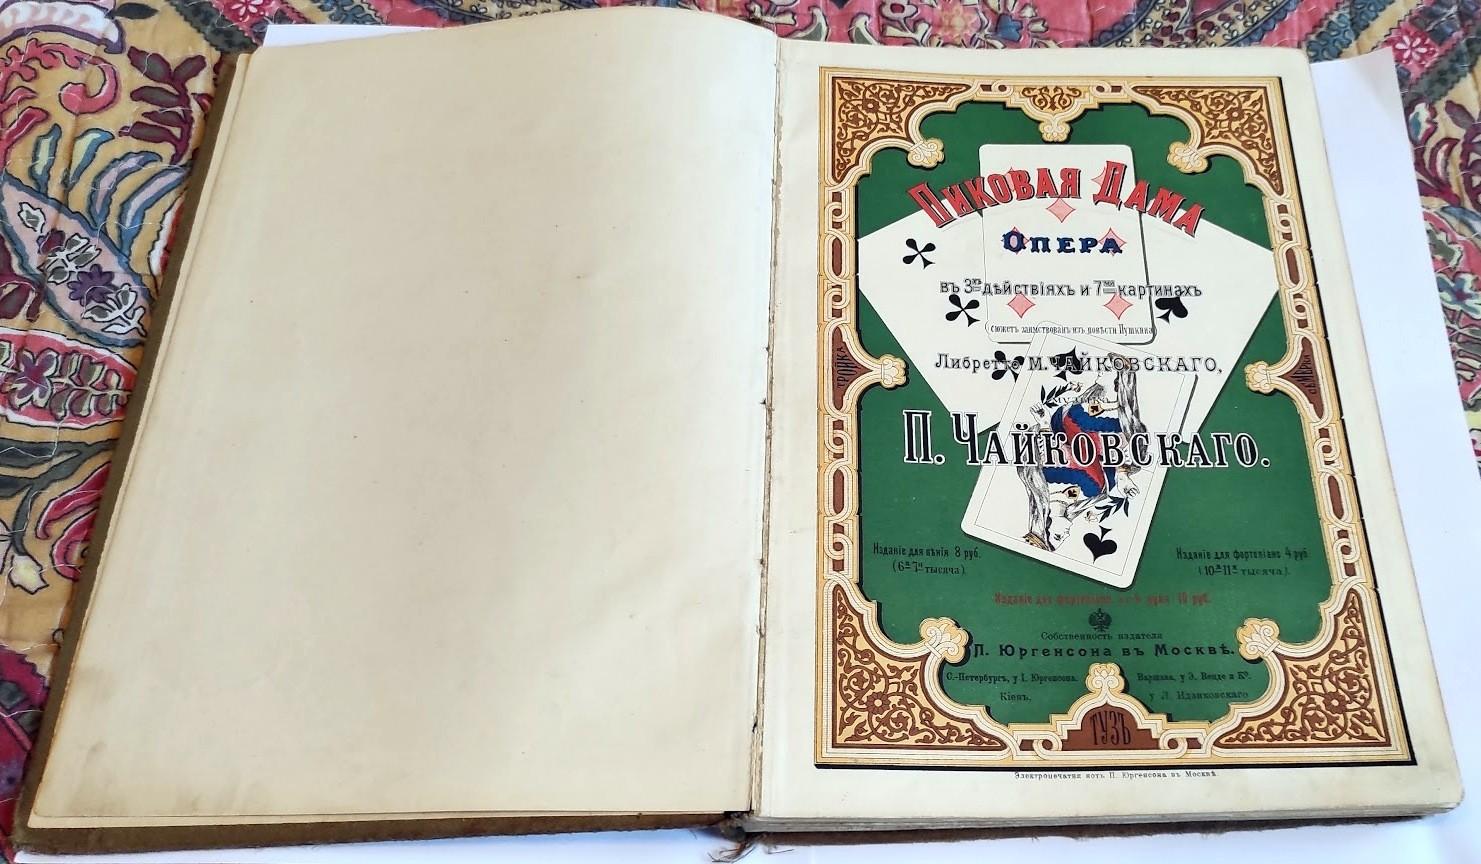 Пиковая Дама
Опера
въ 3хъ дѣйствіяхъ и 7ми картинахъ
сюжетъ заимствованъ изъ повѣсти Пушкина
Либретто М. Чайковскаго,
музыка
П. Чайковскаго.
тройка
семерка
Изданіе для пѣнія 8 руб.
(6я-7я тысяча).
Изданіе для фортепіано 4 руб.
(10я-11я тысяча).
Изданіе для фортепіано въ 4 руки 10 руб.
Собственность издателя
П. Юргенсона въ Москвѣ.
С.-Петербургъ, у І. Юргенсона.
Варшава, у Э. Венде и Ко.
Кіевъ,
у Л. Идзиковскаго
ТУЗЪ
Электропечатня нотъ П. Юргенсона въ Москвѣ.